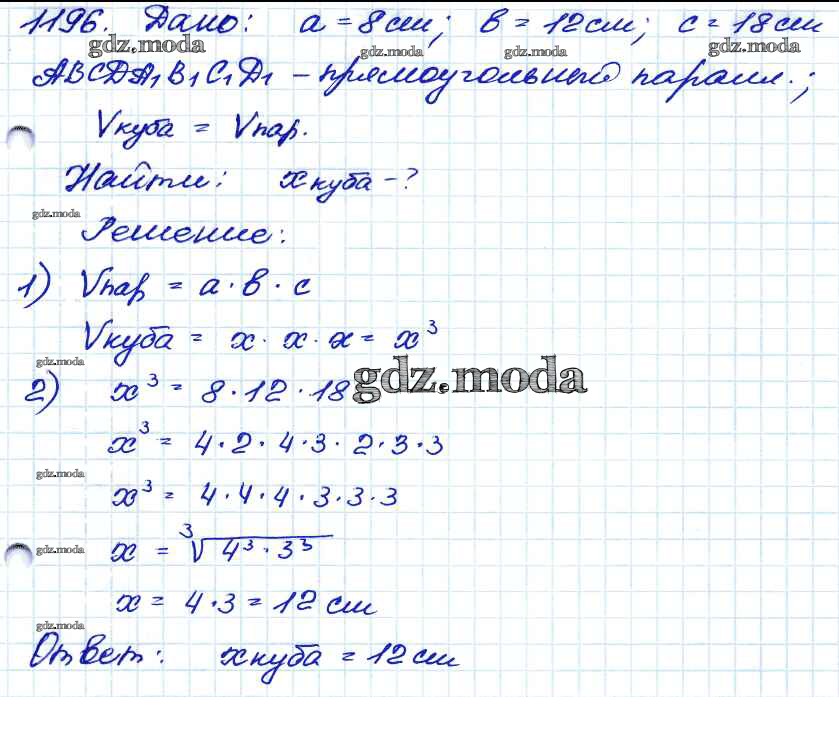 1196. Дано: a = 8 см; в = 12 см; c = 18 см
gdz.moda gdz.moda gdz.moda gdz.moda
ABCDA₁B₁C₁D₁ – прямоугольный паралл.;
Vкуба = Vпар.
Найти: xкуба – ?
gdz.moda
Решение:
1) Vпар = a · в · c
Vкуба = x · x · x = x³
gdz.moda
2) x³ = 8 · 12 · 18
gdz.moda
x³ = 4 · 2 · 4 · 3 · 2 · 3 · 3
gdz.moda
x³ = 4 · 4 · 4 · 3 · 3 · 3
gdz.moda
x = ∛(4³ · 3³)
x = 4 · 3 = 12 см
gdz.moda
Ответ: xкуба = 12 см